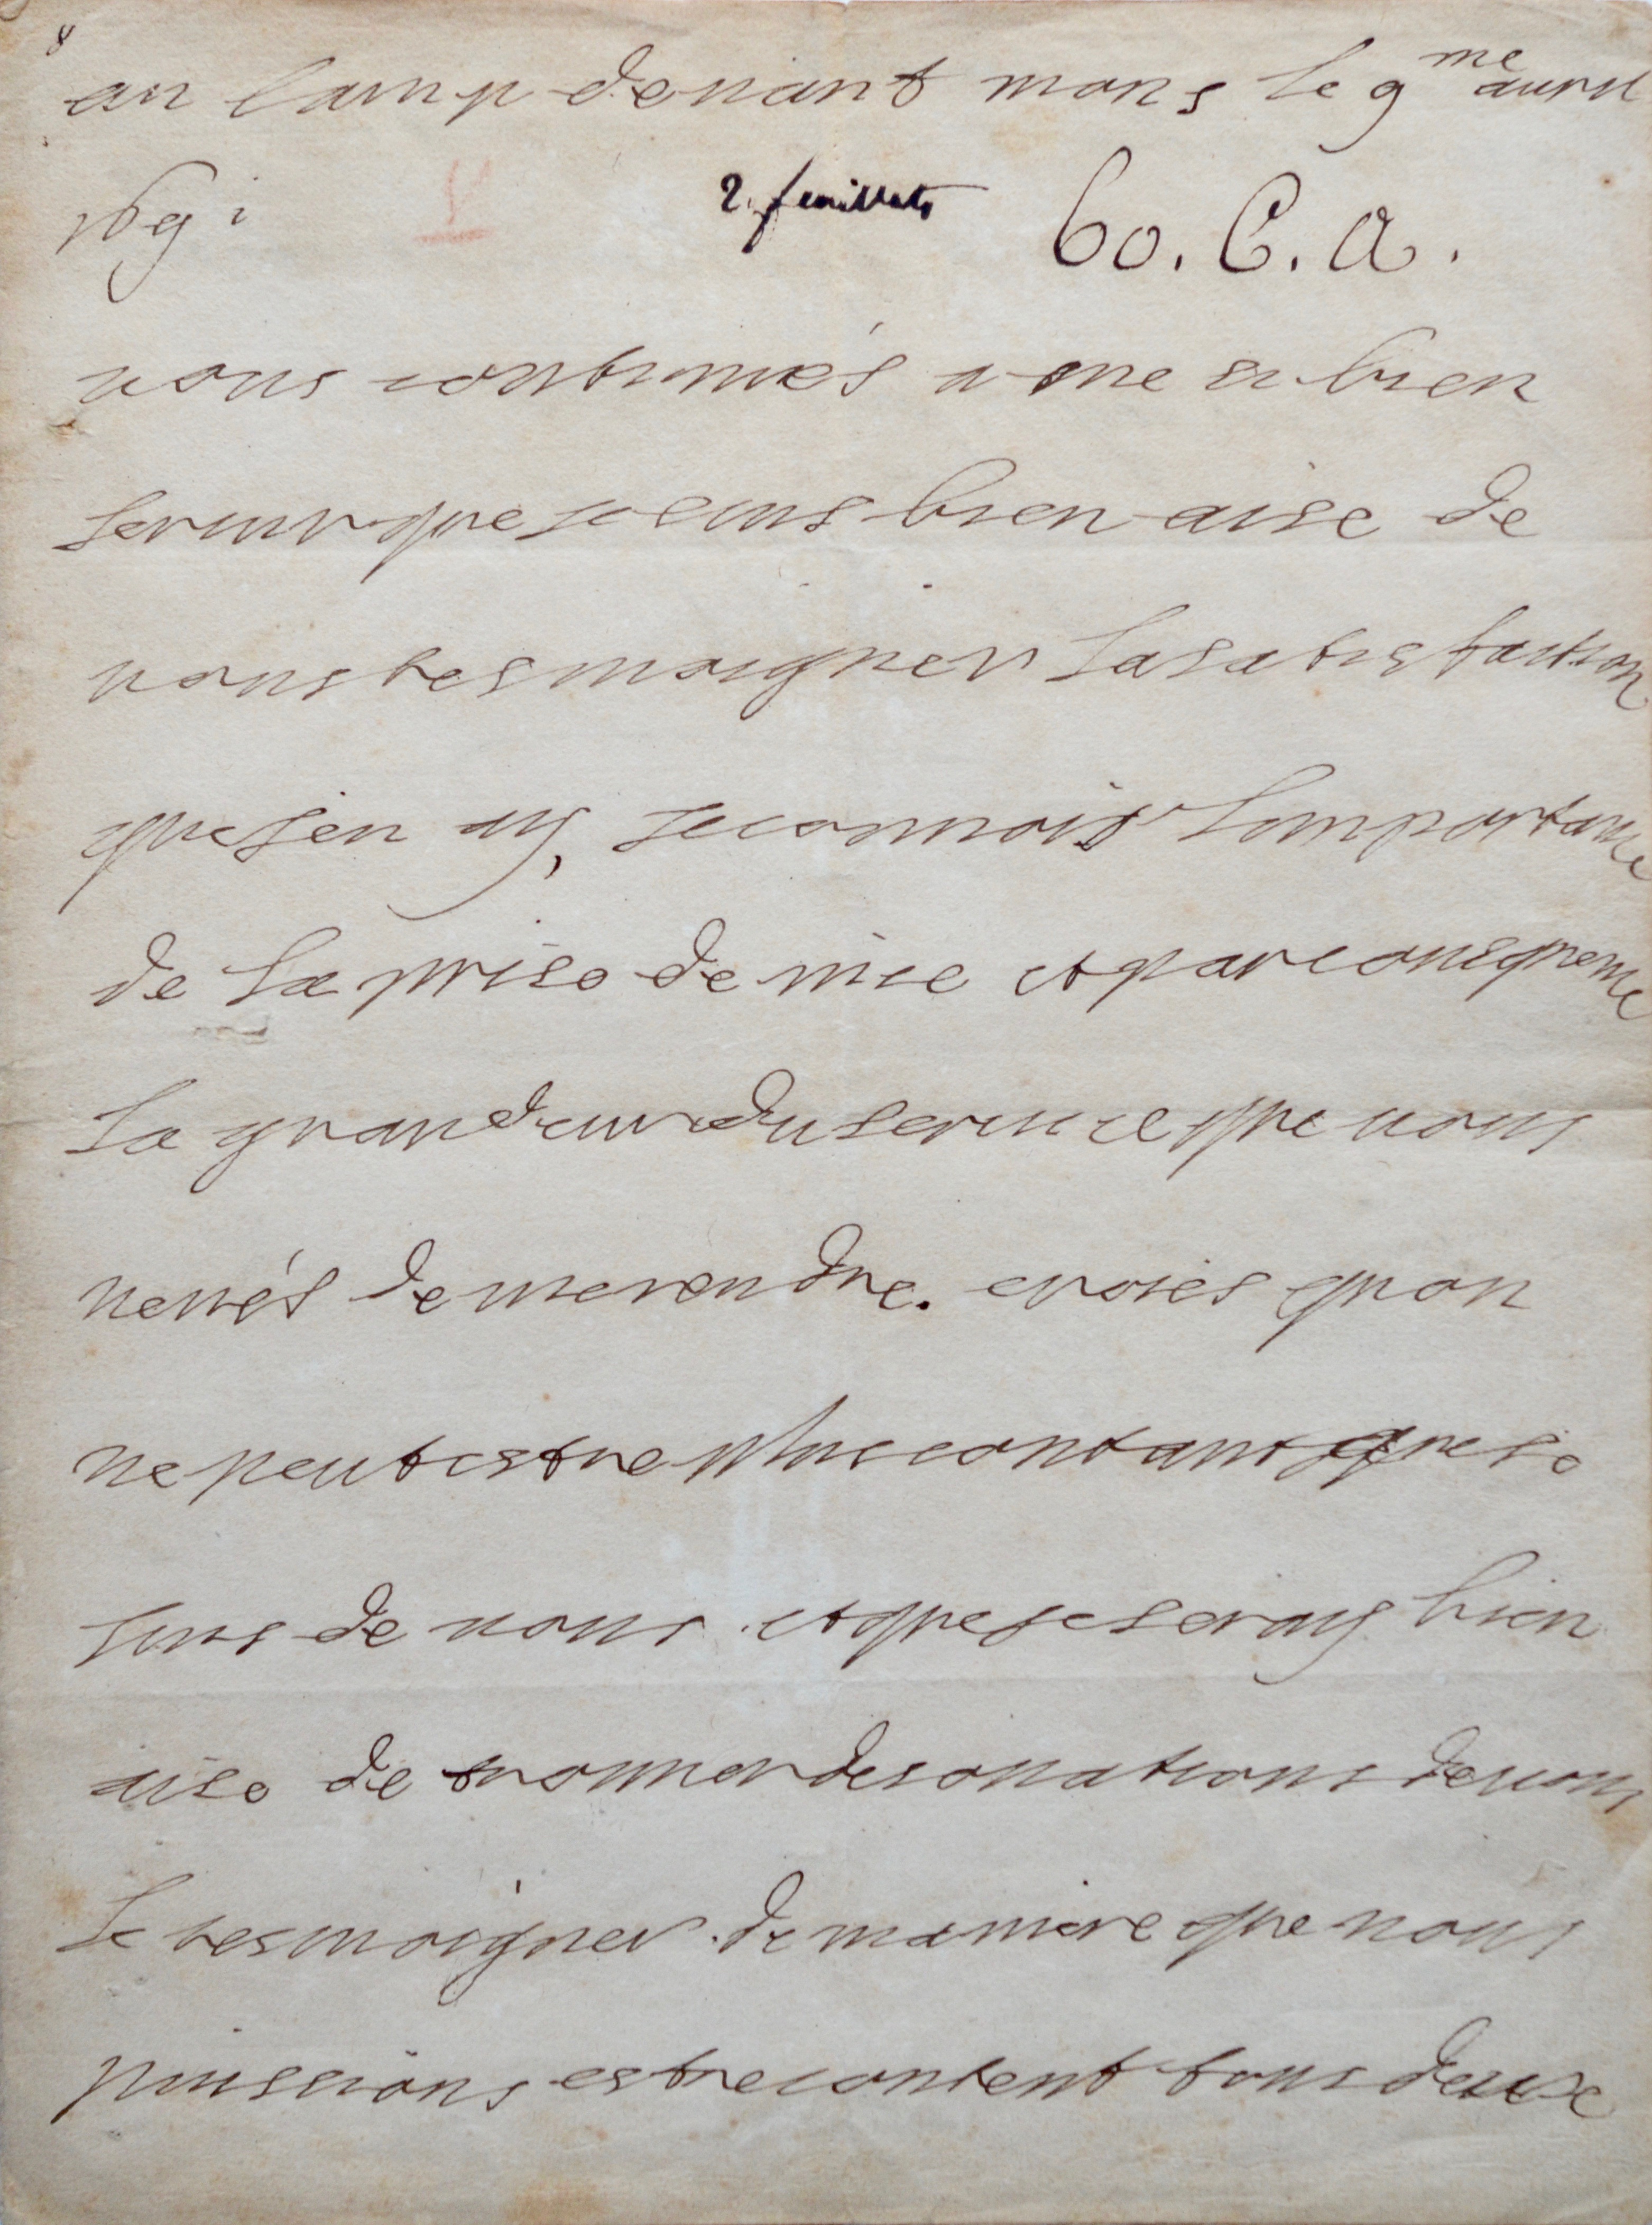 au camp devant mons le 9me auril
1691
2 feuillets 60. C. A.
vous continués a me si bien
servir que je suis bien aise de
vous tesmoigner la satisfaction
que jen ay, je connois limportance
de la prise de nice et par consequence
la grandeur du service que vous
venés de me rendre. croiés quon
ne peut estre plus contant que je
suis de vous et que je seray bien
aise de trouver des ocations de vous
le tesmoigner de maniere que nous
puissions estre content tous deux